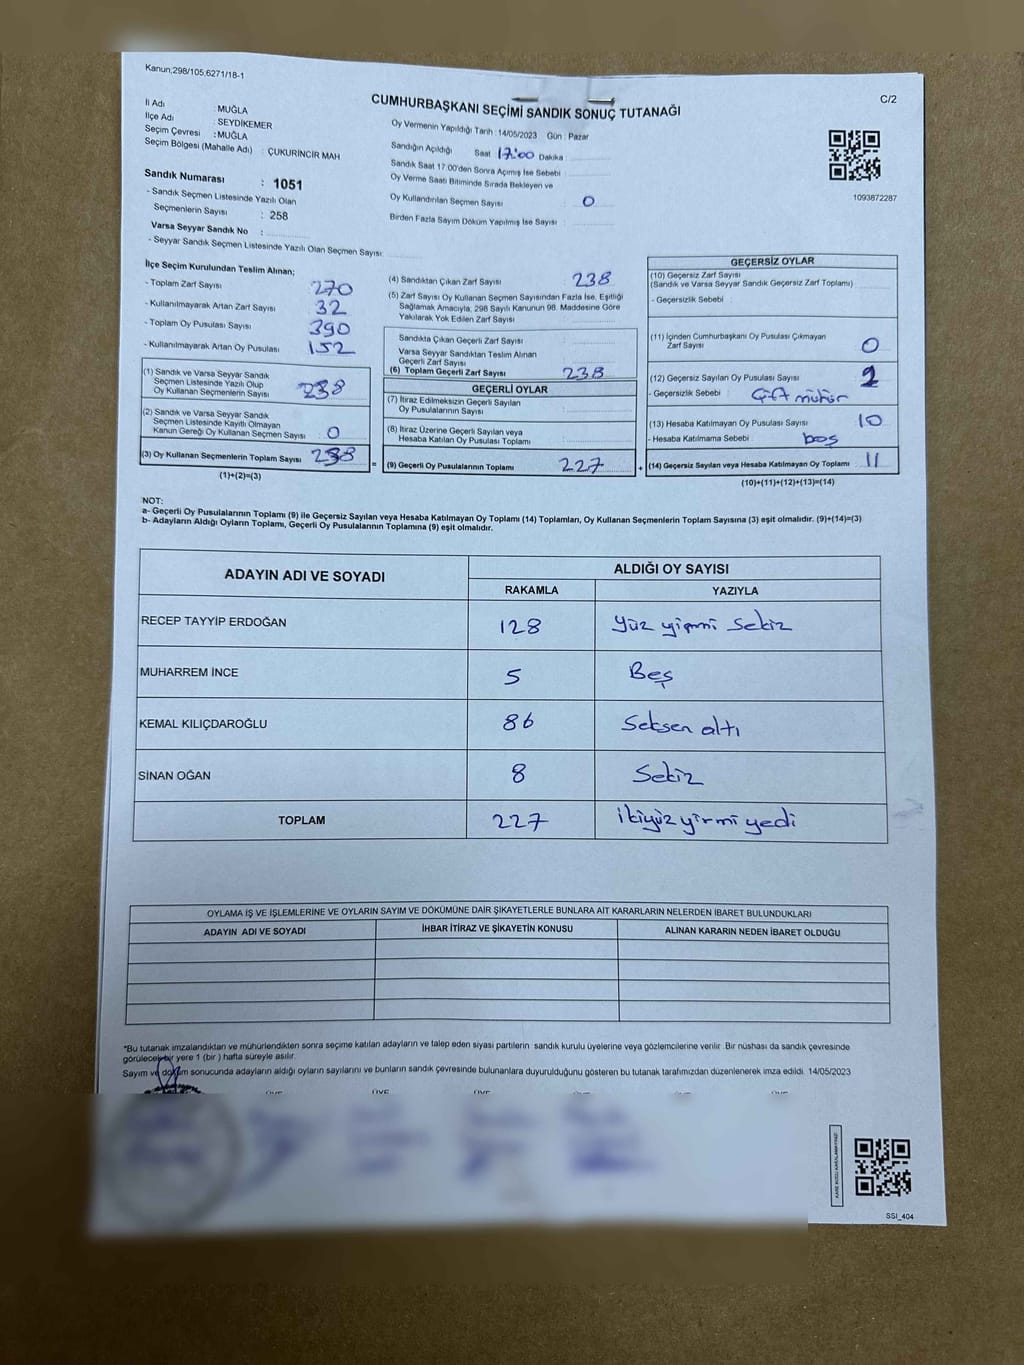 Kanun;298/105,6271/18-1
C/2
CUMHURBAŞKANI SEÇİMİ SANDIK SONUÇ TUTANAĞI
İl Adı : MUĞLA
İlçe Adı : SEYDİKEMER
Seçim Çevresi : MUĞLA
Seçim Bölgesi (Mahalle Adı) : ÇUKURİNCİR MAH
Sandık Numarası : 1051
- Sandık Seçmen Listesinde Yazılı Olan
Seçmenlerin Sayısı : 258
Varsa Seyyar Sandık No :
- Seyyar Sandık Seçmen Listesinde Yazılı Olan Seçmen Sayısı:
Oy Vermenin Yapıldığı Tarih :14/05/2023 Gün : Pazar
Sandığın Açıldığı Saat 17:00 Dakika :
Sandık Saat 17:00'den Sonra Açımış İse Sebebi :
Oy Verme Saati Bitiminde Sırada Bekleyen ve
Oy Kullandırılan Seçmen Sayısı : 0
Birden Fazla Sayım Döküm Yapılmış İse Sayısı :
1093872287
İlçe Seçim Kurulundan Teslim Alınan;
- Toplam Zarf Sayısı : 270
- Kullanılmayarak Artan Zarf Sayısı : 32
- Toplam Oy Pusulası Sayısı : 390
- Kullanılmayarak Artan Oy Pusulası : 152
(1) Sandık ve Varsa Seyyar Sandık
Seçmen Listesinde Yazılı Olup
Oy Kullanan Seçmenlerin Sayısı : 238
(2) Sandık ve Varsa Seyyar Sandık
Seçmen Listesinde Kayıtlı Olmayan
Kanun Gereği Oy Kullanan Seçmen Sayısı : 0
(3) Oy Kullanan Seçmenlerin Toplam Sayısı : 238
(1)+(2)=(3)
(4) Sandıktan Çıkan Zarf Sayısı : 238
(5) Zarf Sayısı Oy Kullanan Seçmen Sayısından Fazla İse, Eşitliği
Sağlamak Amacıyla, 298 Sayılı Kanunun 98. Maddesine Göre
Yakılarak Yok Edilen Zarf Sayısı :
Sandıkta Çıkan Geçerli Zarf Sayısı :
Varsa Seyyar Sandıktan Teslim Alınan
Geçerli Zarf Sayısı :
(6) Toplam Geçerli Zarf Sayısı : 238
GEÇERLİ OYLAR
(7) İtiraz Edilmeksizin Geçerli Sayılan
Oy Pusulalarının Sayısı :
(8) İtiraz Üzerine Geçerli Sayılan veya
Hesaba Katılan Oy Pusulası Toplamı :
= (9) Geçerli Oy Pusulalarının Toplamı : 227 +
GEÇERSİZ OYLAR
(10) Geçersiz Zarf Sayısı
(Sandık ve Varsa Seyyar Sandık Geçersiz Zarf Toplamı) :
- Geçersizlik Sebebi :
(11) İçinden Cumhurbaşkanı Oy Pusulası Çıkmayan
Zarf Sayısı : 0
(12) Geçersiz Sayılan Oy Pusulası Sayısı :
- Geçersizlik Sebebi : Çift mühür
(13) Hesaba Katılmayan Oy Pusulası Sayısı : 10
- Hesaba Katılmama Sebebi : boş
(14) Geçersiz Sayılan veya Hesaba Katılmayan Oy Toplamı : 11
(10)+(11)+(12)+(13)=(14)
NOT:
a- Geçerli Oy Pusulalarının Toplamı (9) ile Geçersiz Sayılan veya Hesaba Katılmayan Oy Toplamı (14) Toplamları, Oy Kullanan Seçmenlerin Toplam Sayısına (3) eşit olmalıdır. (9)+(14)=(3)
b- Adayların Aldığı Oyların Toplamı, Geçerli Oy Pusulalarının Toplamına (9) eşit olmalıdır.
ADAYIN ADI VE SOYADI ALDIĞI OY SAYISI
RAKAMLA YAZIYLA
RECEP TAYYİP ERDOĞAN 128 Yüz yirmi sekiz
MUHARREM İNCE 5 Beş
KEMAL KILIÇDAROĞLU 86 Seksen altı
SİNAN OĞAN 8 Sekiz
TOPLAM 227 ikiyüz yirmi yedi
OYLAMA İŞ VE İŞLEMLERİNE VE OYLARIN SAYIM VE DÖKÜMÜNE DAİR ŞİKAYETLERLE BUNLARA AİT KARARLARIN NELERDEN İBARET BULUNDUKLARI
ADAYIN ADI VE SOYADI İHBAR İTİRAZ VE ŞİKAYETİN KONUSU ALINAN KARARIN NEDEN İBARET OLDUĞU
*Bu tutanak imzalandıktan ve mühürlendikten sonra seçime katılan adayların ve talep eden siyasi partilerin sandık kurulu üyelerine veya gözlemcilerine verilir. Bir nüshası da sandık çevresinde
görülecek bir yere 1 (bir ) hafta süreyle asılır.
Sayım ve döküm sonucunda adayların aldığı oyların sayılarını ve bunların sandık çevresinde bulunanlara duyurulduğunu gösteren bu tutanak tarafımızdan düzenlenerek imza edildi. 14/05/2023
ÜYE ÜYE ÜYE ÜYE ÜYE
SSI_404